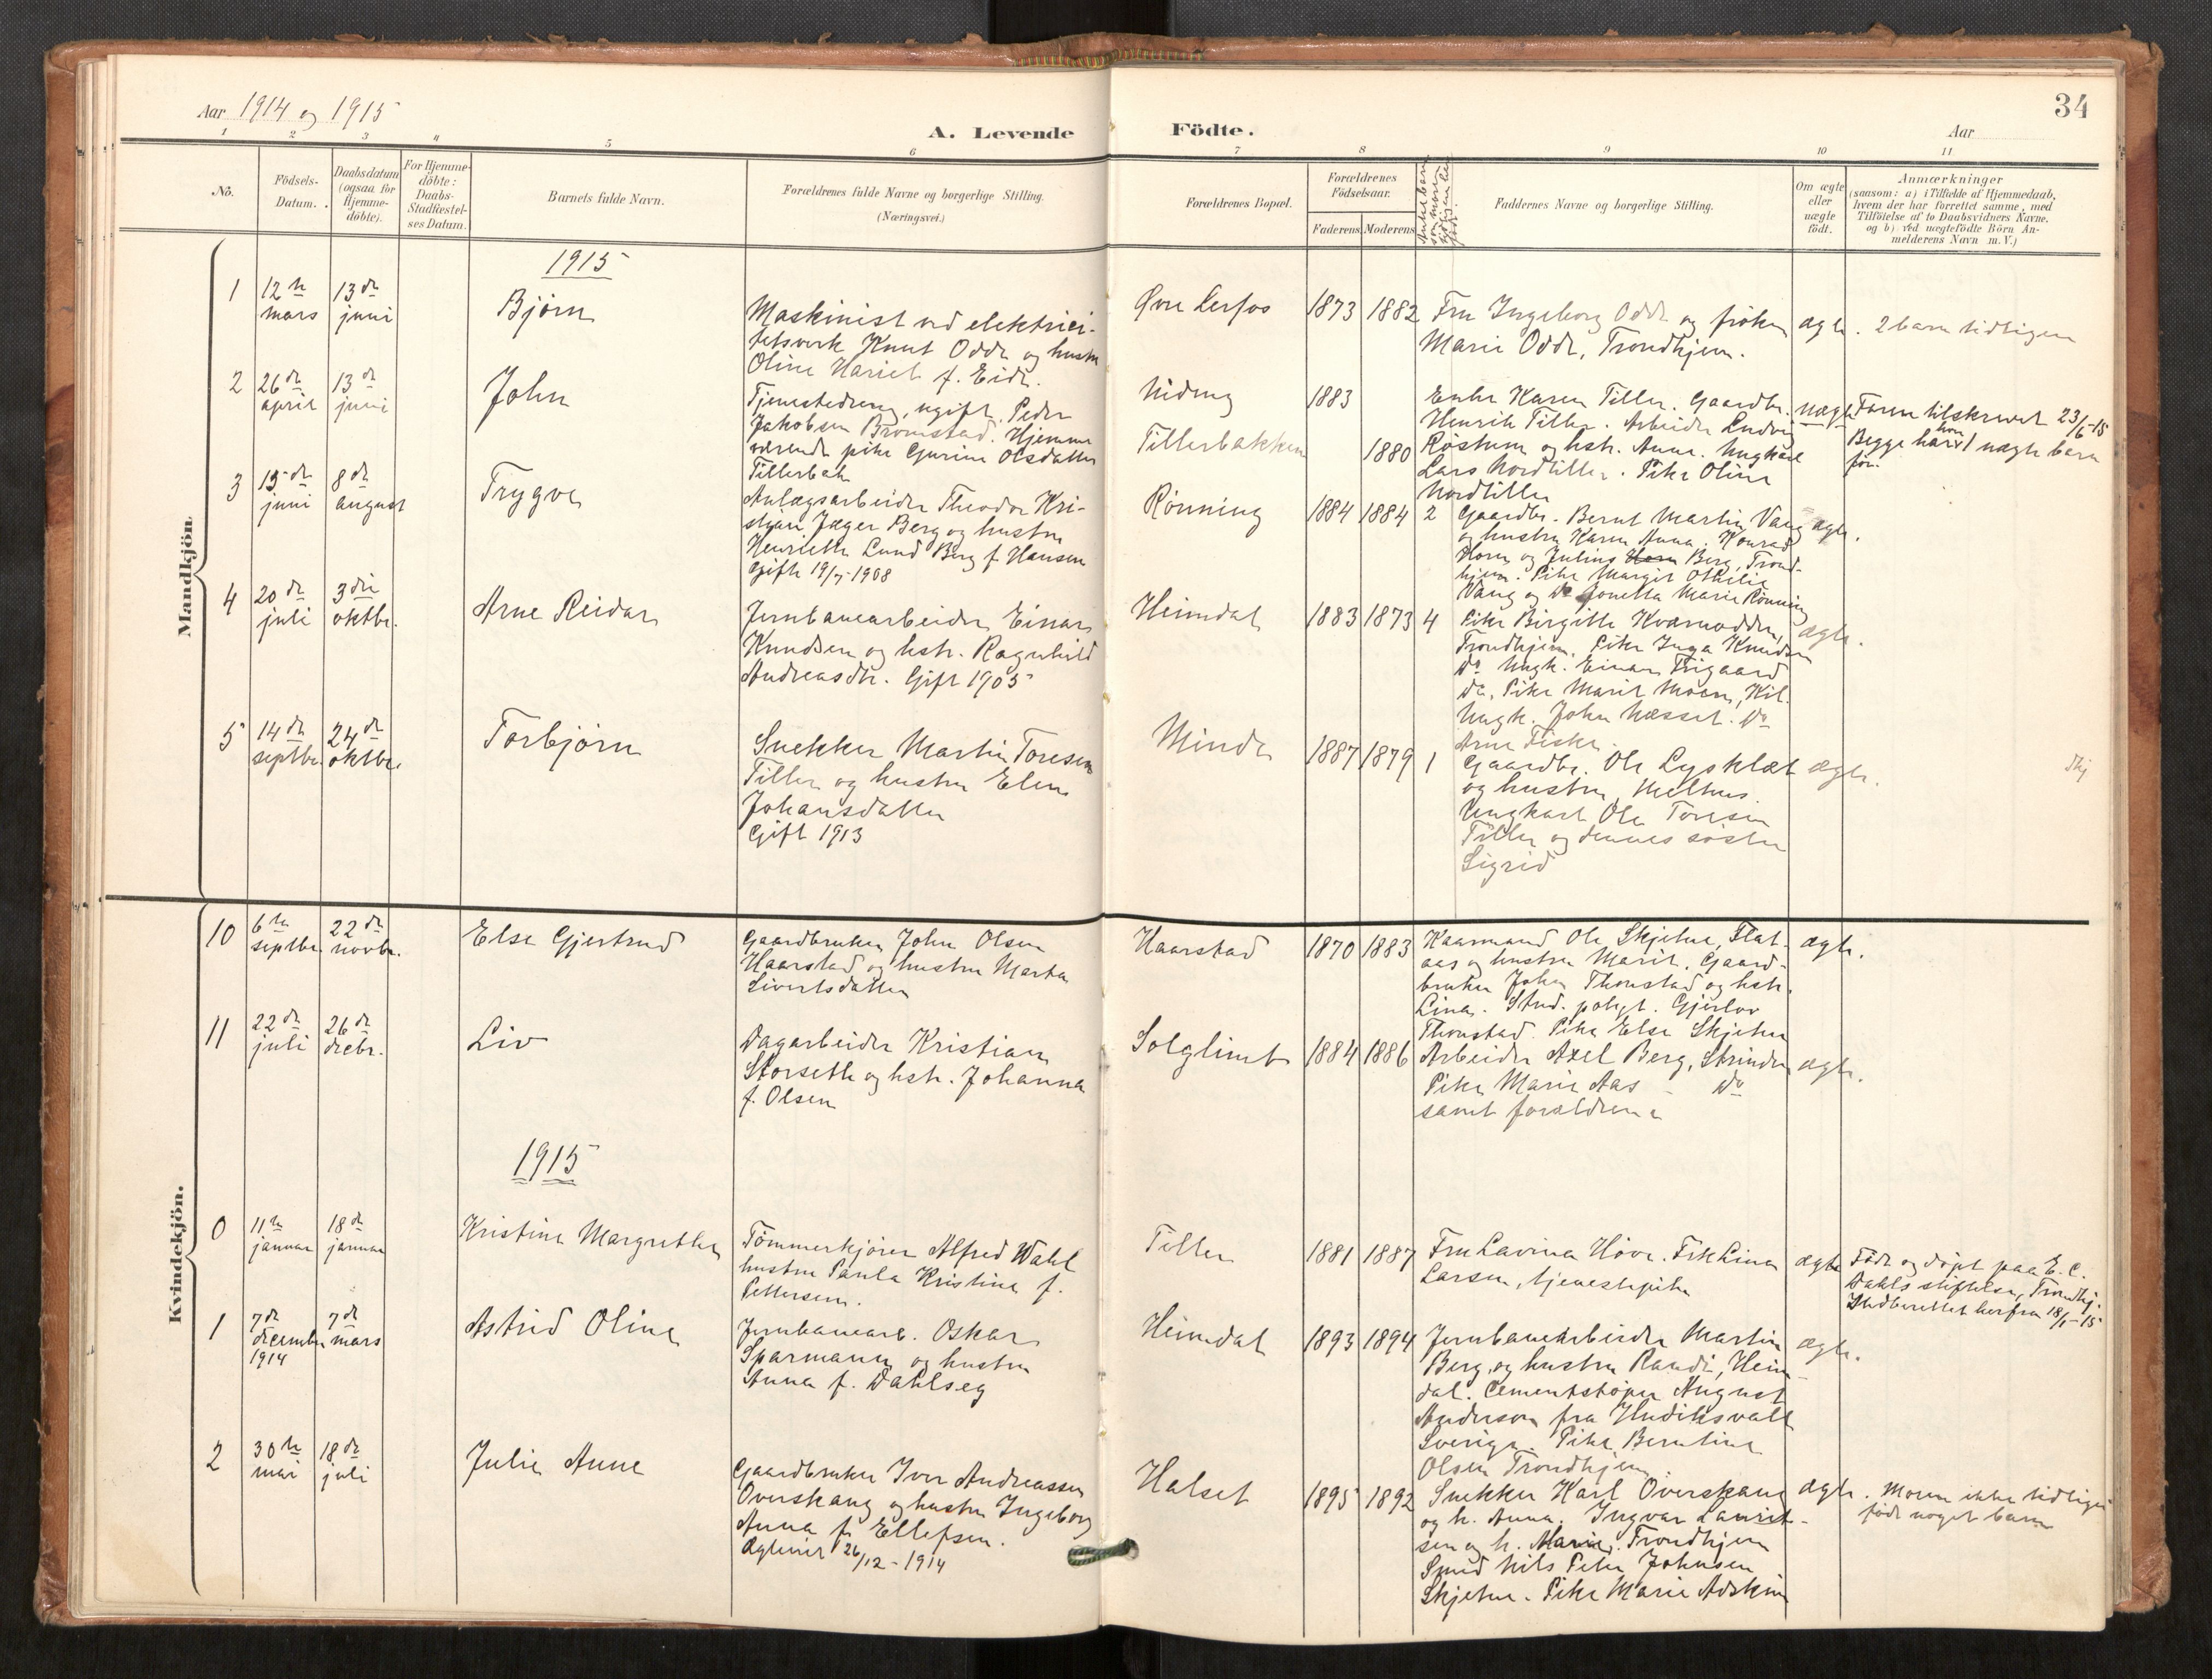 Aar 1914 og 1915
A. Levende
Födte.
Aar
34
1
2
3
4
5
6
7
8
9
10
11
No.
Födsels-
Datum.
Daabsdatum
(ogsaa for
Hjemme-
döbte).
For Hjemme-
döbte:
Daabs-
Stadfæstel-
ses Datum.
Barnets fulde Navn.
Forældrenes fulde Navne og borgerlige Stilling.
(Næringsvei.)
Forældrenes Bopæl.
Forældrenes
Födselsaar.
Faderens.
Moderens.
Faddernes Navne og borgerlige Stilling.
Om ægte
eller
uægte
födt.
Anmærkninger
(saasom: a) i Tilfælde af Hjemmedaab,
hvem der har forrettet samme, med
Tilföielse af to Daabsvidners Navne,
og b) ved uægtefödte Börn An-
melderens Navn m. V.)
Mandkjön.
1915
1
12te
mars
13de
juni
Björn
Maskinist ved elektrici-
tetsverk Knut Odde og hustru
Oline Hariet f. Eide.
Øvre Lerfos
1873
1882
Fru Ingeborg Odde og fröken
Marie Odde, Trondhjem.
ægte.
2 barn tidligere
2
26de
april
13de
juni
John
Tjenestedreng, ugift, Peder
Jakobsen Bromstad. Hjemme
værende pike Gurine Olsdatter
Tillerbak
Nideng
Tillerbakken
1883
1880
Enke Karen Tiller. Gaardbr.
Henrik Tiller. Arbeider Ludvig
Røstum og hstr. Anne. Ungkarl
Lars Nordtiller. Pike Oline
Nordtiller
uægte
Faren tilskrevet 23/6-15
Begge har hver 1 uægte barn
før.
3
15de
juni
8de
august
Trygve
Anlægsarbeider Theodor Kri-
stian Jæger Berg og hustru
Henriette Lund Berg f. Hansen
Gifte 19/7-1908
Rønning
1884
1884
2
Gaardbr. Bernt Martin Vang
og hustru Karen Anna. Konrad
Horn og Julius Berg, Trond-
hjem. Pike Margit Othilie
Vang og Do Jonetta Marie Rönning
ægte.
4
20de
juli
3die
oktbr.
Arne Reidar
Jernbanearbeider Einar
Knudsen og hstr. Ragnhild
Andreasdtr. Gift 1905
Heimdal
1883
1873
4
Pike Birgitte Kvarmodden,
Trondhjem. Pike Inga Knudsen
Do. Ungk. Einar Trigaard
Do, Pike Marit Moen, Kil.
Ungk. John Næsset. Do
Arne Fiske.
ægte.
5
14de
septbr.
24de
oktbr.
Torbjörn
Snekker Martin Toresen
Tiller og hustru Elen
Johansdatter
Gift 1913
Minde
1887
1879
1
Gaardbr. Ole Lysklæt
og hustru, Melhus.
Ungkarl Ole Toresen
Tiller og dennes söster
Sigrid
ægte.
Kvindekjön.
10
6te
septbr.
22de
novbr.
Else Gjertrud
Gaardbruker John Olsen
Haarstad og hustru Marta
Sivertsdatter
Haarstad
1870
1883
Kaarmand Ole Skjetne, Flat-
aas og hustru Marit. Gaard-
bruker John Thonstad og hstr.
Lina. Stud. polyt. Gjerlov
Thonstad. Pike Else Skjetne
ægte.
11
22de
juli
26de
decbr.
Liv
Dagarbeider Kristian
Storseth og hstr. Johanna
f. Olsen
Solglimt
1884
1886
Arbeider Axel Berg, Strinden
Pike Marie Aas - Do
samt forældrene
ægte.
1915
0
11te
januar
18de
januar
Kristine Margrethe
Tömmerkjörer Alfred Wahl
hustru Paula Kristine f.
Pettersen.
Tiller
1881
1887
Fru Lavina Höve. Frk Lina
Larsen, tjenestepike
ægte
Födt og döpt paa E. C.
Dahls stiftelse, Trondhj.
Indberettet herfra 18/1-15
1
7de
december
1914
7de
mars
Astrid Oline
Jernbanearb. Oskar
Sparmann og hustru
Anna f. Dahlseg
Heimdal
1893
1894
Jernbanearbeider Martin
Berg og hustru Randi, Heim-
dal. Cementstöper August
Anderson fra Hudiksvall
Sverige. Pike Berntine
Olsen Trondhjem.
ægte.
2
30te
mai
18de
juli
Julie Anne
Gaardbruker Iver Andreassen
Overskaug og hustru Ingeborg
Anna f. Ellefsen.
Egteviet 26/12-1914
Halset
1895
1892
Snekker Karl Overskaug
og h. Anna. Ingvar Laurit-
sen og h. Marie, Trondhjem
Smed Nils Peter Johnsen
Skjetne. Pike Marie Adskin
ægte.
Moren ikke tidligere
födt noget barn